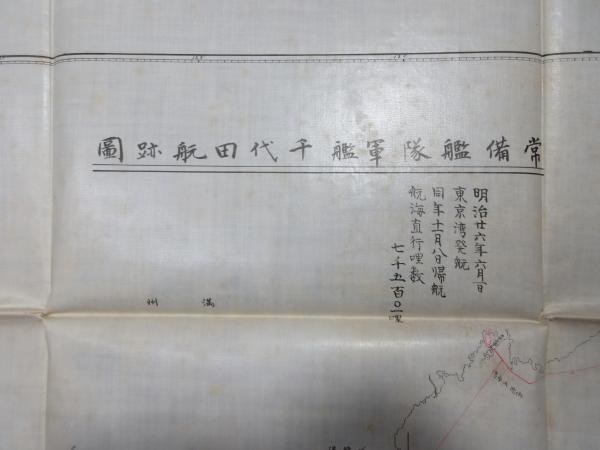 常備艦隊軍艦千代田航跡圖
明治廿六年六月一日
東京湾発航
同年十一月八日帰航
航海直行哩数
七千五百〇一哩
満州